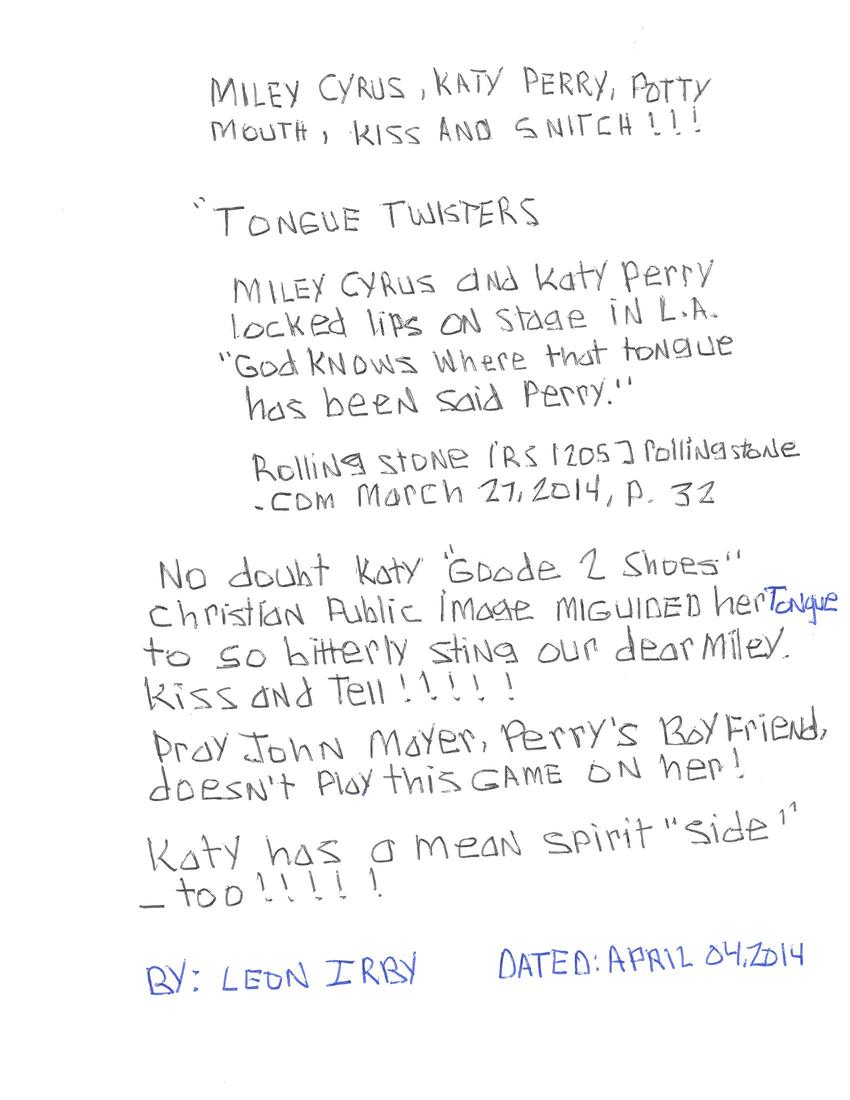 MILEY CYRUS, KATY PERRY, POTTY
MOUTH, KISS AND SNITCH!!!
"TONGUE TWISTERS
MILEY CYRUS and Katy Perry
locked lips ON Stage iN L.A.
"God KNOWS Where that tongue
has beeN Said Perry."
Rolling stone [RS 1205] rollingstone
.COM March 27, 2014, P. 32
No doubt Katy "Goode 2 Shoes"
Christian Public image MIGUIDED her Tongue
to so bitterly sting our dear Miley.
Kiss and Tell!!!!!
Pray John Mayer, Perry's Boy Friend,
doesn't Play this GAME ON her!
Katy has a mean spirit "side"
_ too!!!!!
BY: LEON IRBY DATED: APRIL 04, 2014